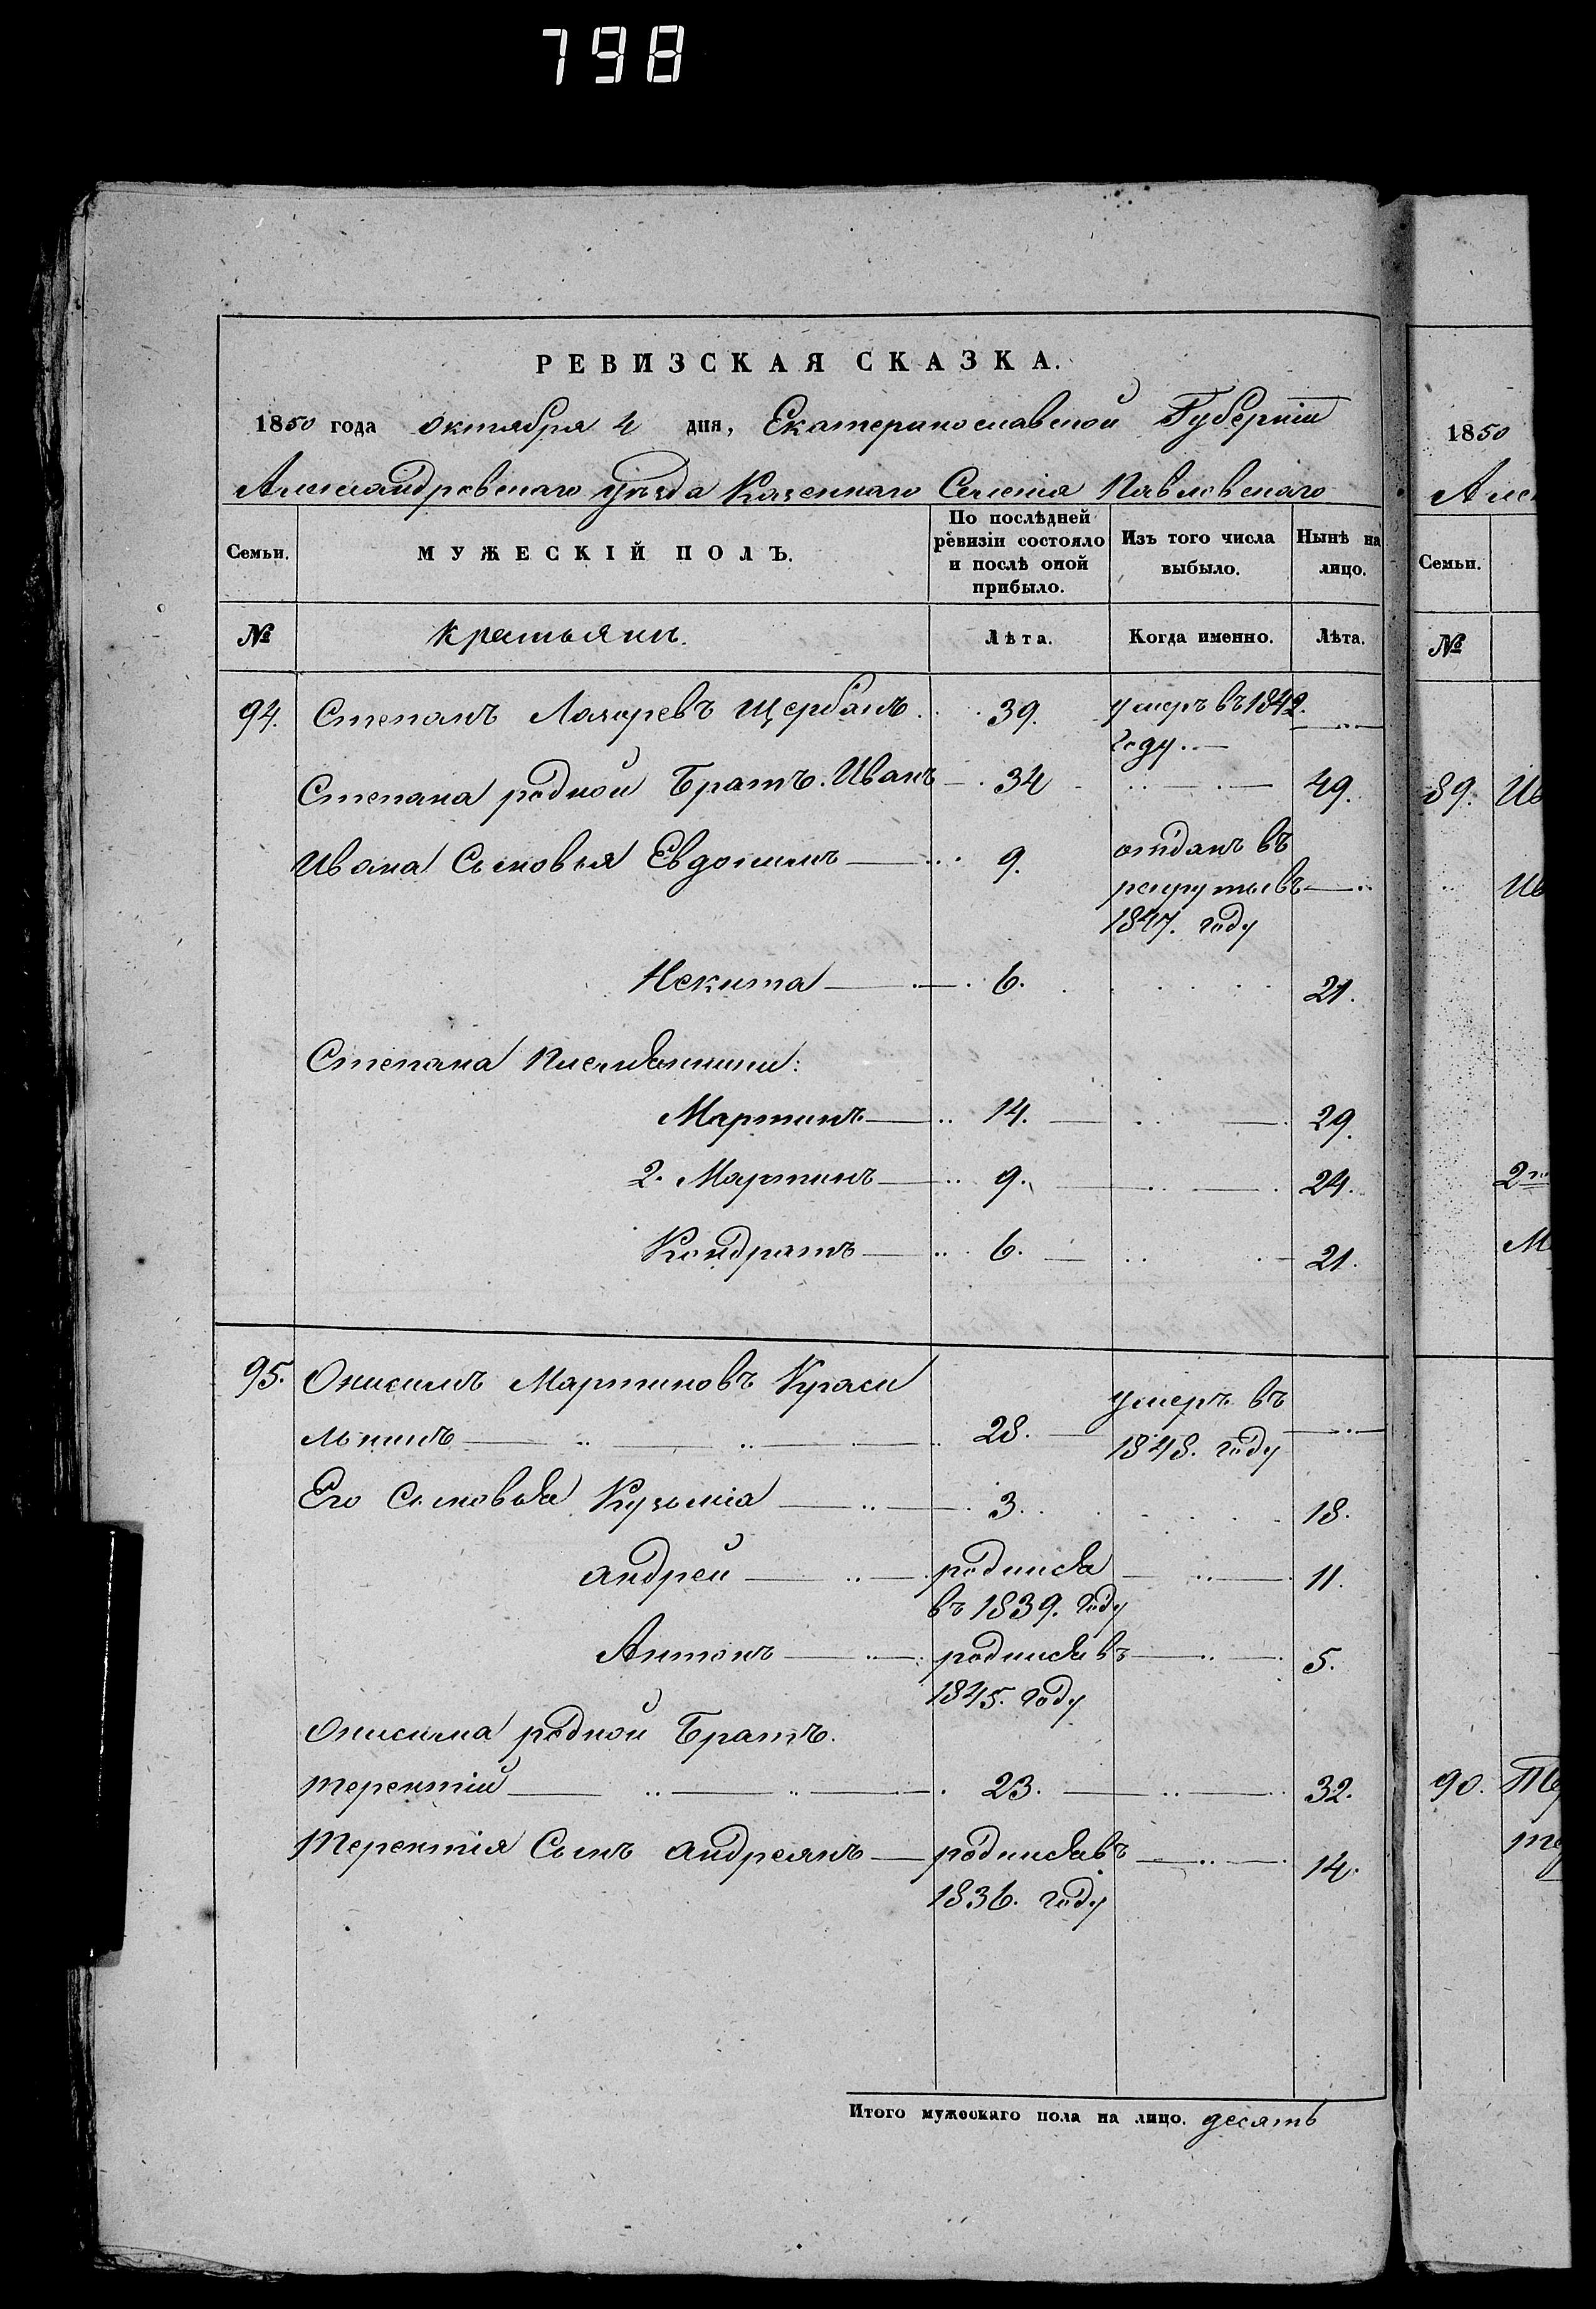 798
РЕВИЗСКАЯ СКАЗКА.
1850 года октября 4 дня, Екатеринославской Губернии
Александровскаго уѣзда Казеннаго Селенія Павловскаго
Семьи. МУЖЕСКІЙ ПОЛЪ. По послѣдней ревизіи состояло и послѣ оной прибыло. Изъ того числа выбыло. Нынѣ на лицо.
№ крестьянъ. Лѣта. Когда именно. Лѣта.
94. Степанъ Лазаревъ Щербань 39. умеръ въ 1842.
году.
Степана родной Братъ. Иванъ 34 49.
Ивана Сыновья Евдокимъ 9. отданъ въ
рекруты въ
1847. году
Некита 6. 21.
Степана племянники:
Мартинъ 14. 29.
2. Мартинъ 9. 24.
Кондратъ 6. 21.
95. Онисимъ Мартиновъ Краси
28. умеръ въ
1848. году
Его Сыновья Кузьма 3. 18.
андрей родился 11.
въ 1839. году
Антонъ родился въ 5.
1845. году
Онисима родной Братъ.
терентій 23. 32.
Терентія Сынъ андреянъ родился въ 14.
1836. году
Итого мужескаго пола на лицо. десять
1850
Алек
Семьи.
№
89. Ив
Ив
2й
М
90. Те
Те